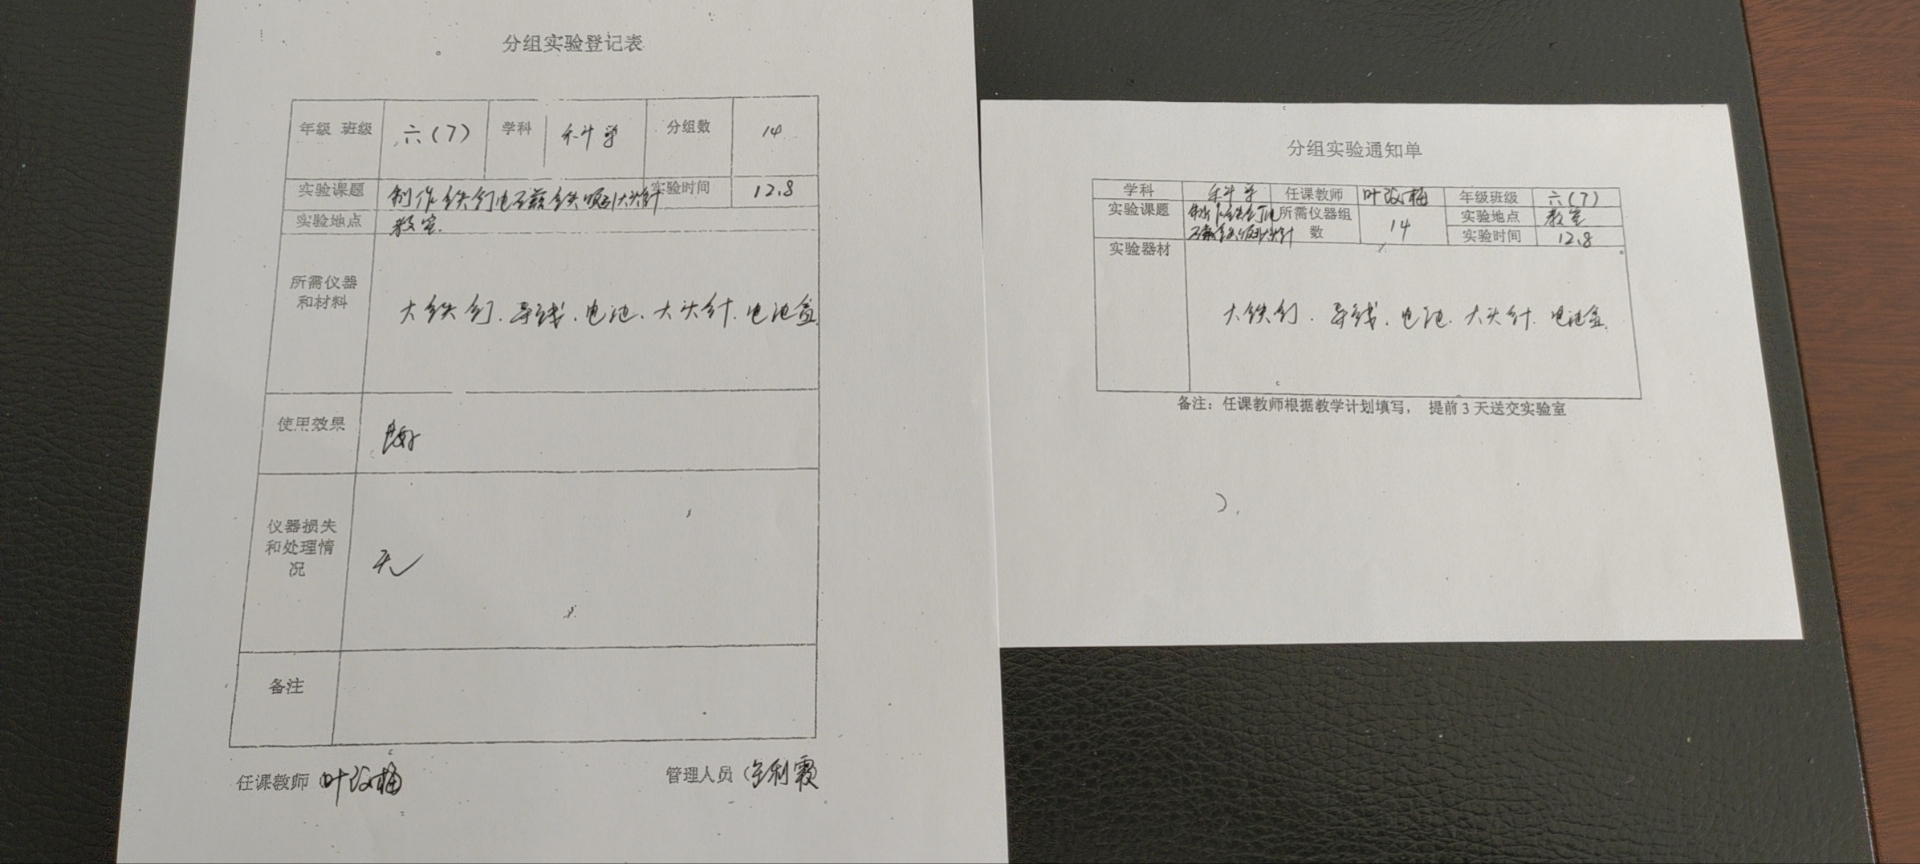 分组实验登记表
年级 班级 六(7) 学科 科学 分组数 14
实验课题 制作铁钉电磁铁吸引大头针 实验时间 12.8
实验地点 教室.
所需仪器
和材料
大铁钉、导线、电池、大头针、电池盒.
使用效果 良好
仪器损失
和处理情
况
无
备注
任课教师 叶改梅 管理人员
分组实验通知单
学科 科学 任课教师 叶改梅 年级班级 六(7)
实验课题 制作铁钉电 所需仪器组 14 实验地点 教室
磁铁吸引大头针 数 实验时间 12.8
实验器材
大铁钉、导线、电池、大头针、电池盒.
备注：任课教师根据教学计划填写， 提前 3 天送交实验室